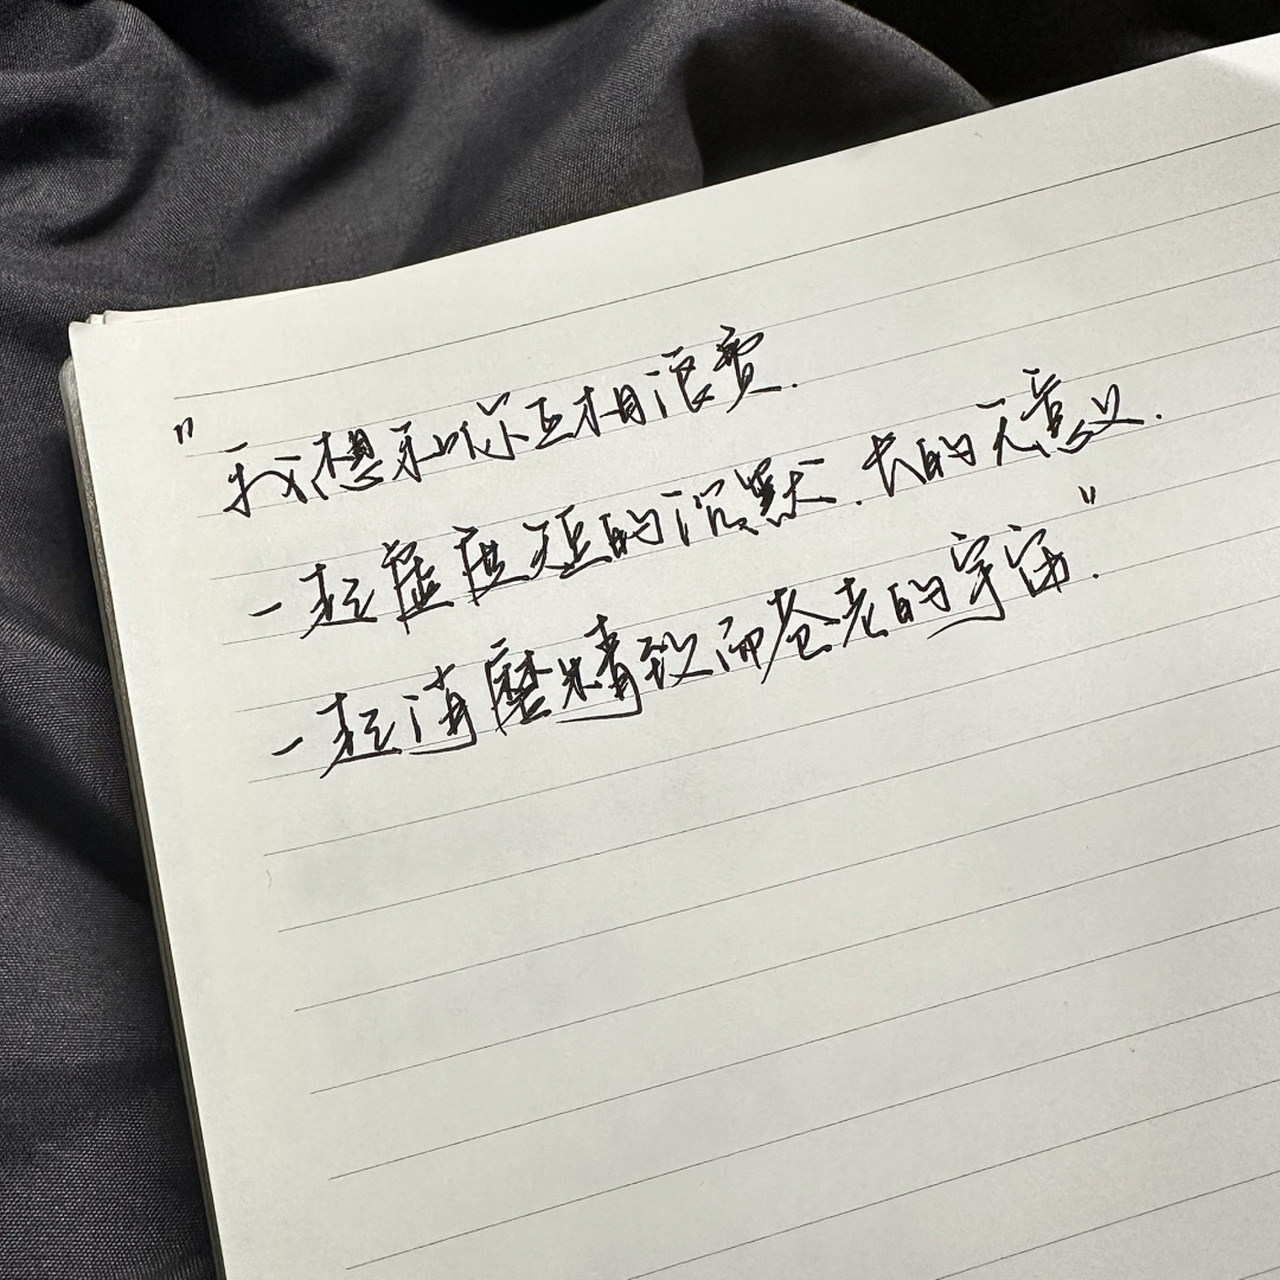 "我想和你互相浪费.
一起虚度短的沉默.长的无意义.
一起消磨精致而苍老的宇宙."